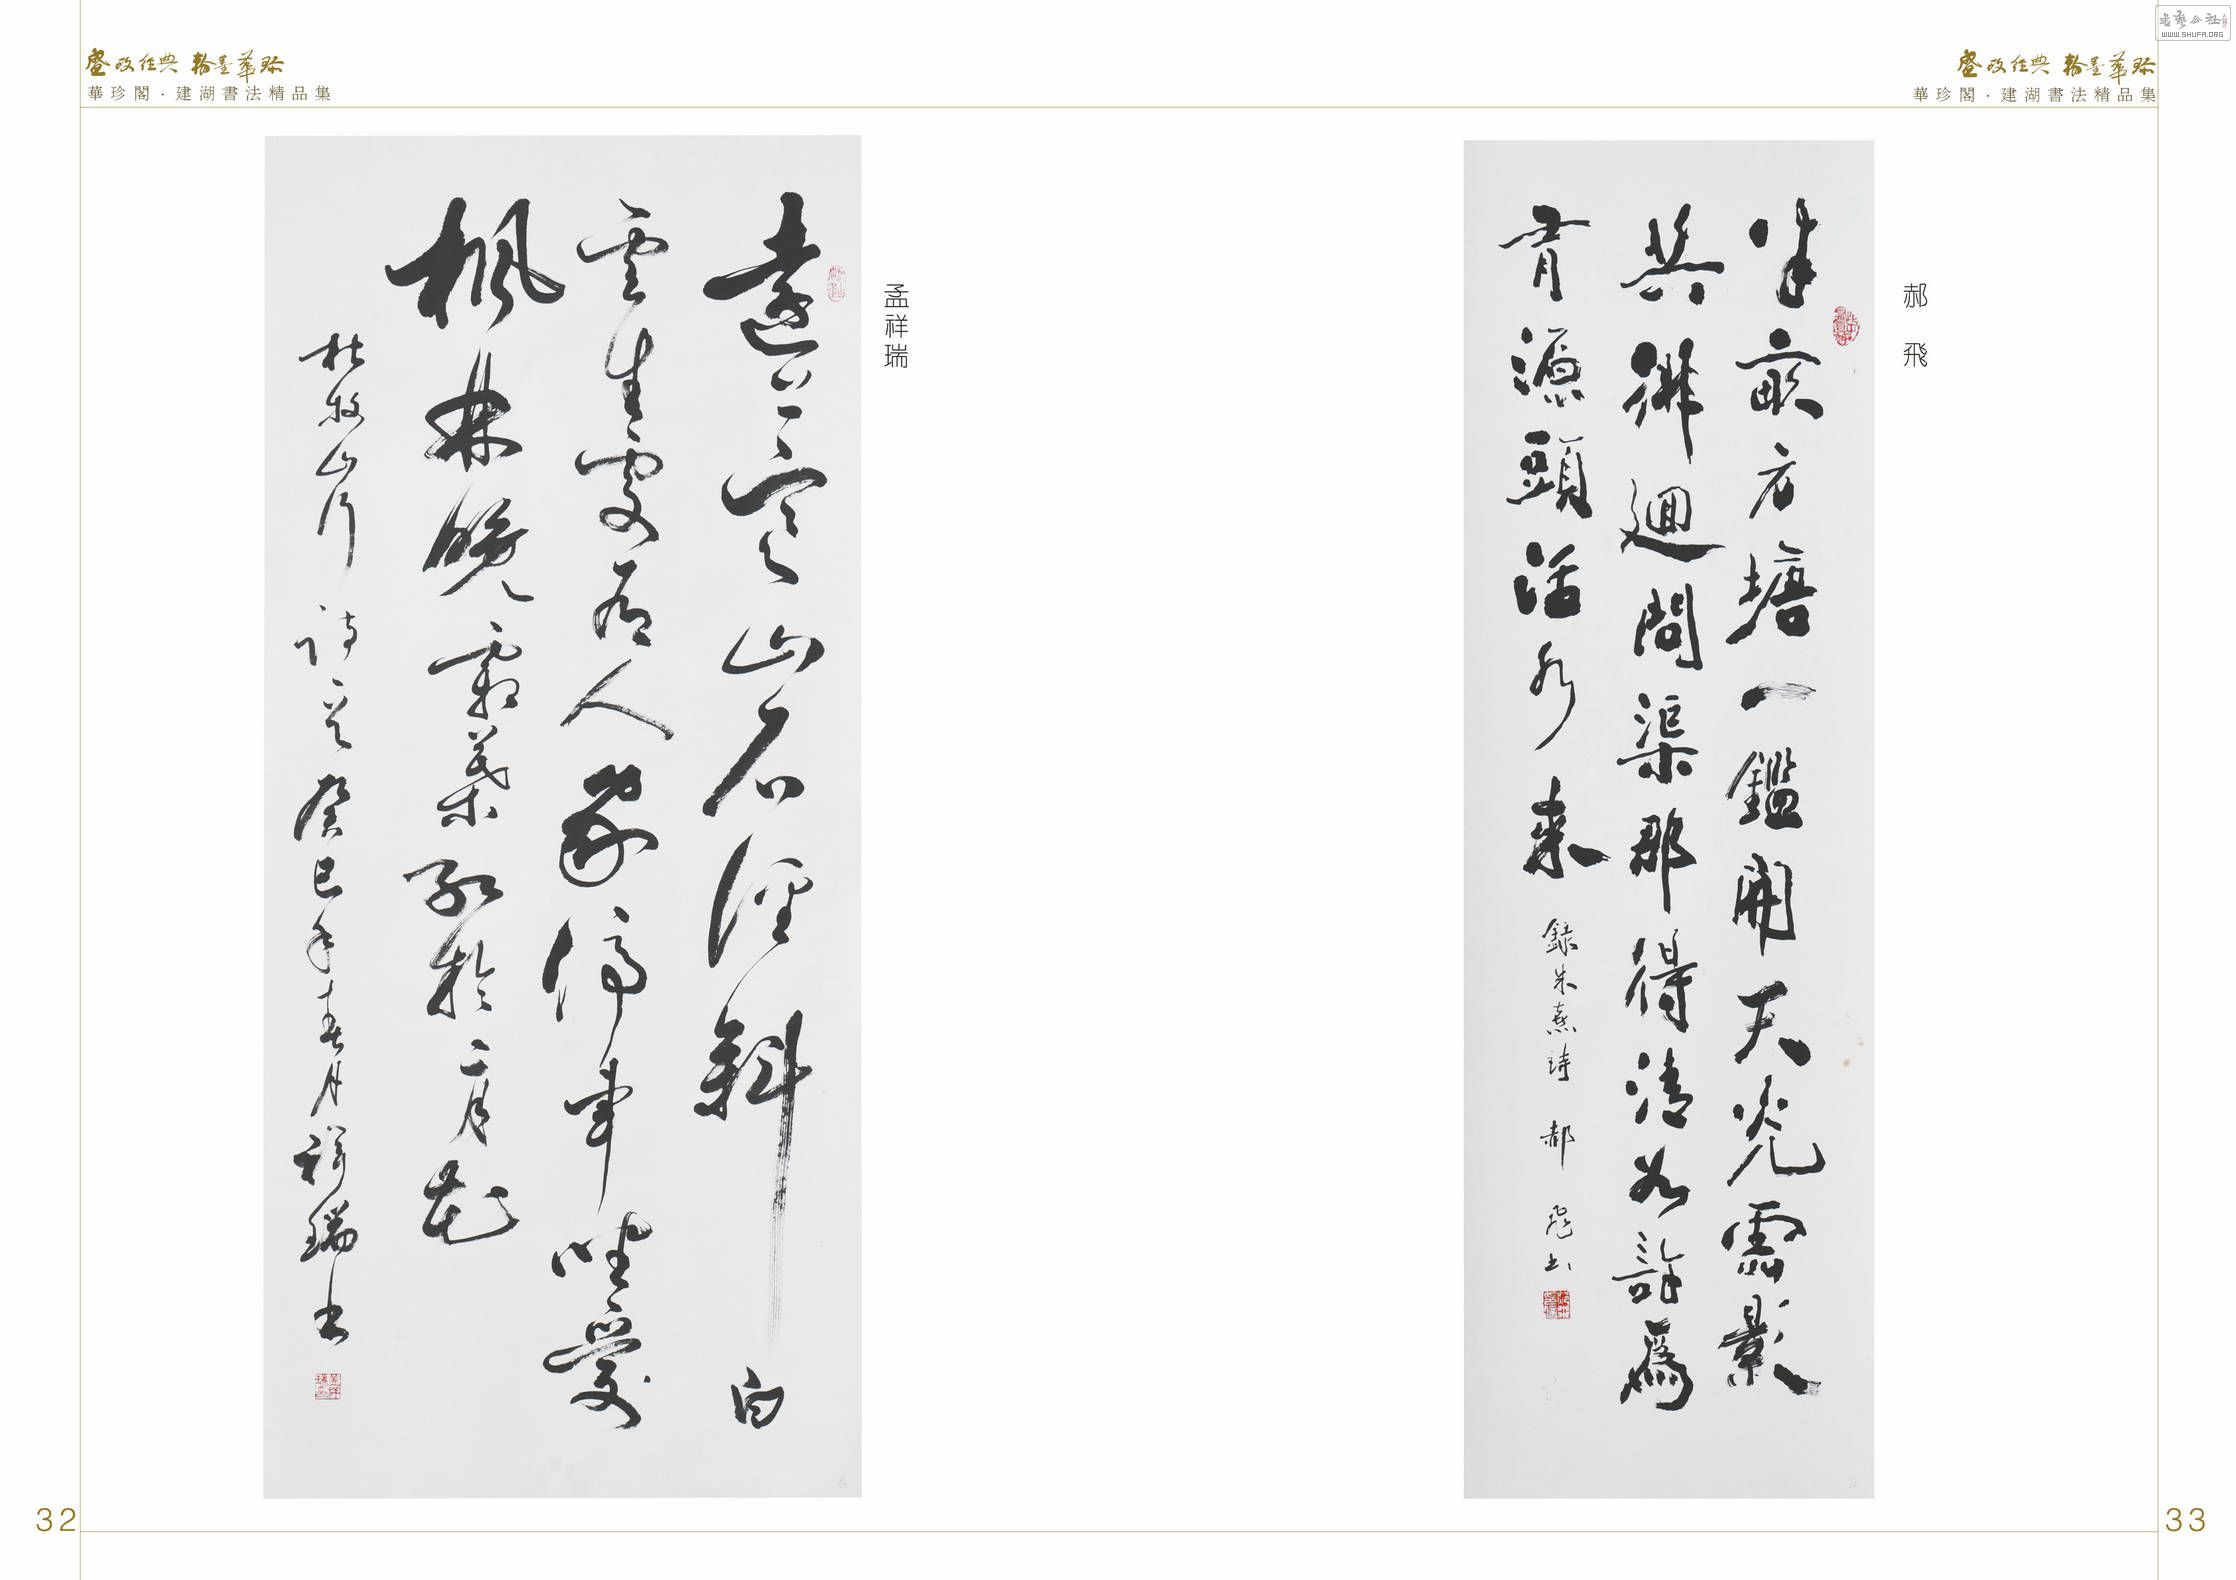 盛 经典 翰墨華珍
華珍閣·建湖書法精品集
孟祥瑞
遠上寒山石徑斜白
雲生處有人家停車坐愛
楓林晚霜葉紅於二月花
杜牧山行詩 癸巳年春月祥瑞书
32
盛 经典 翰墨華珍
華珍閣·建湖書法精品集
郝飛
半畝方塘一鑑開天光雲影
共徘迴問渠那得清如許為
有源頭活水來 錄朱熹詩 郝飛书
33
書藝公社
WWW.SHUFA.ORG